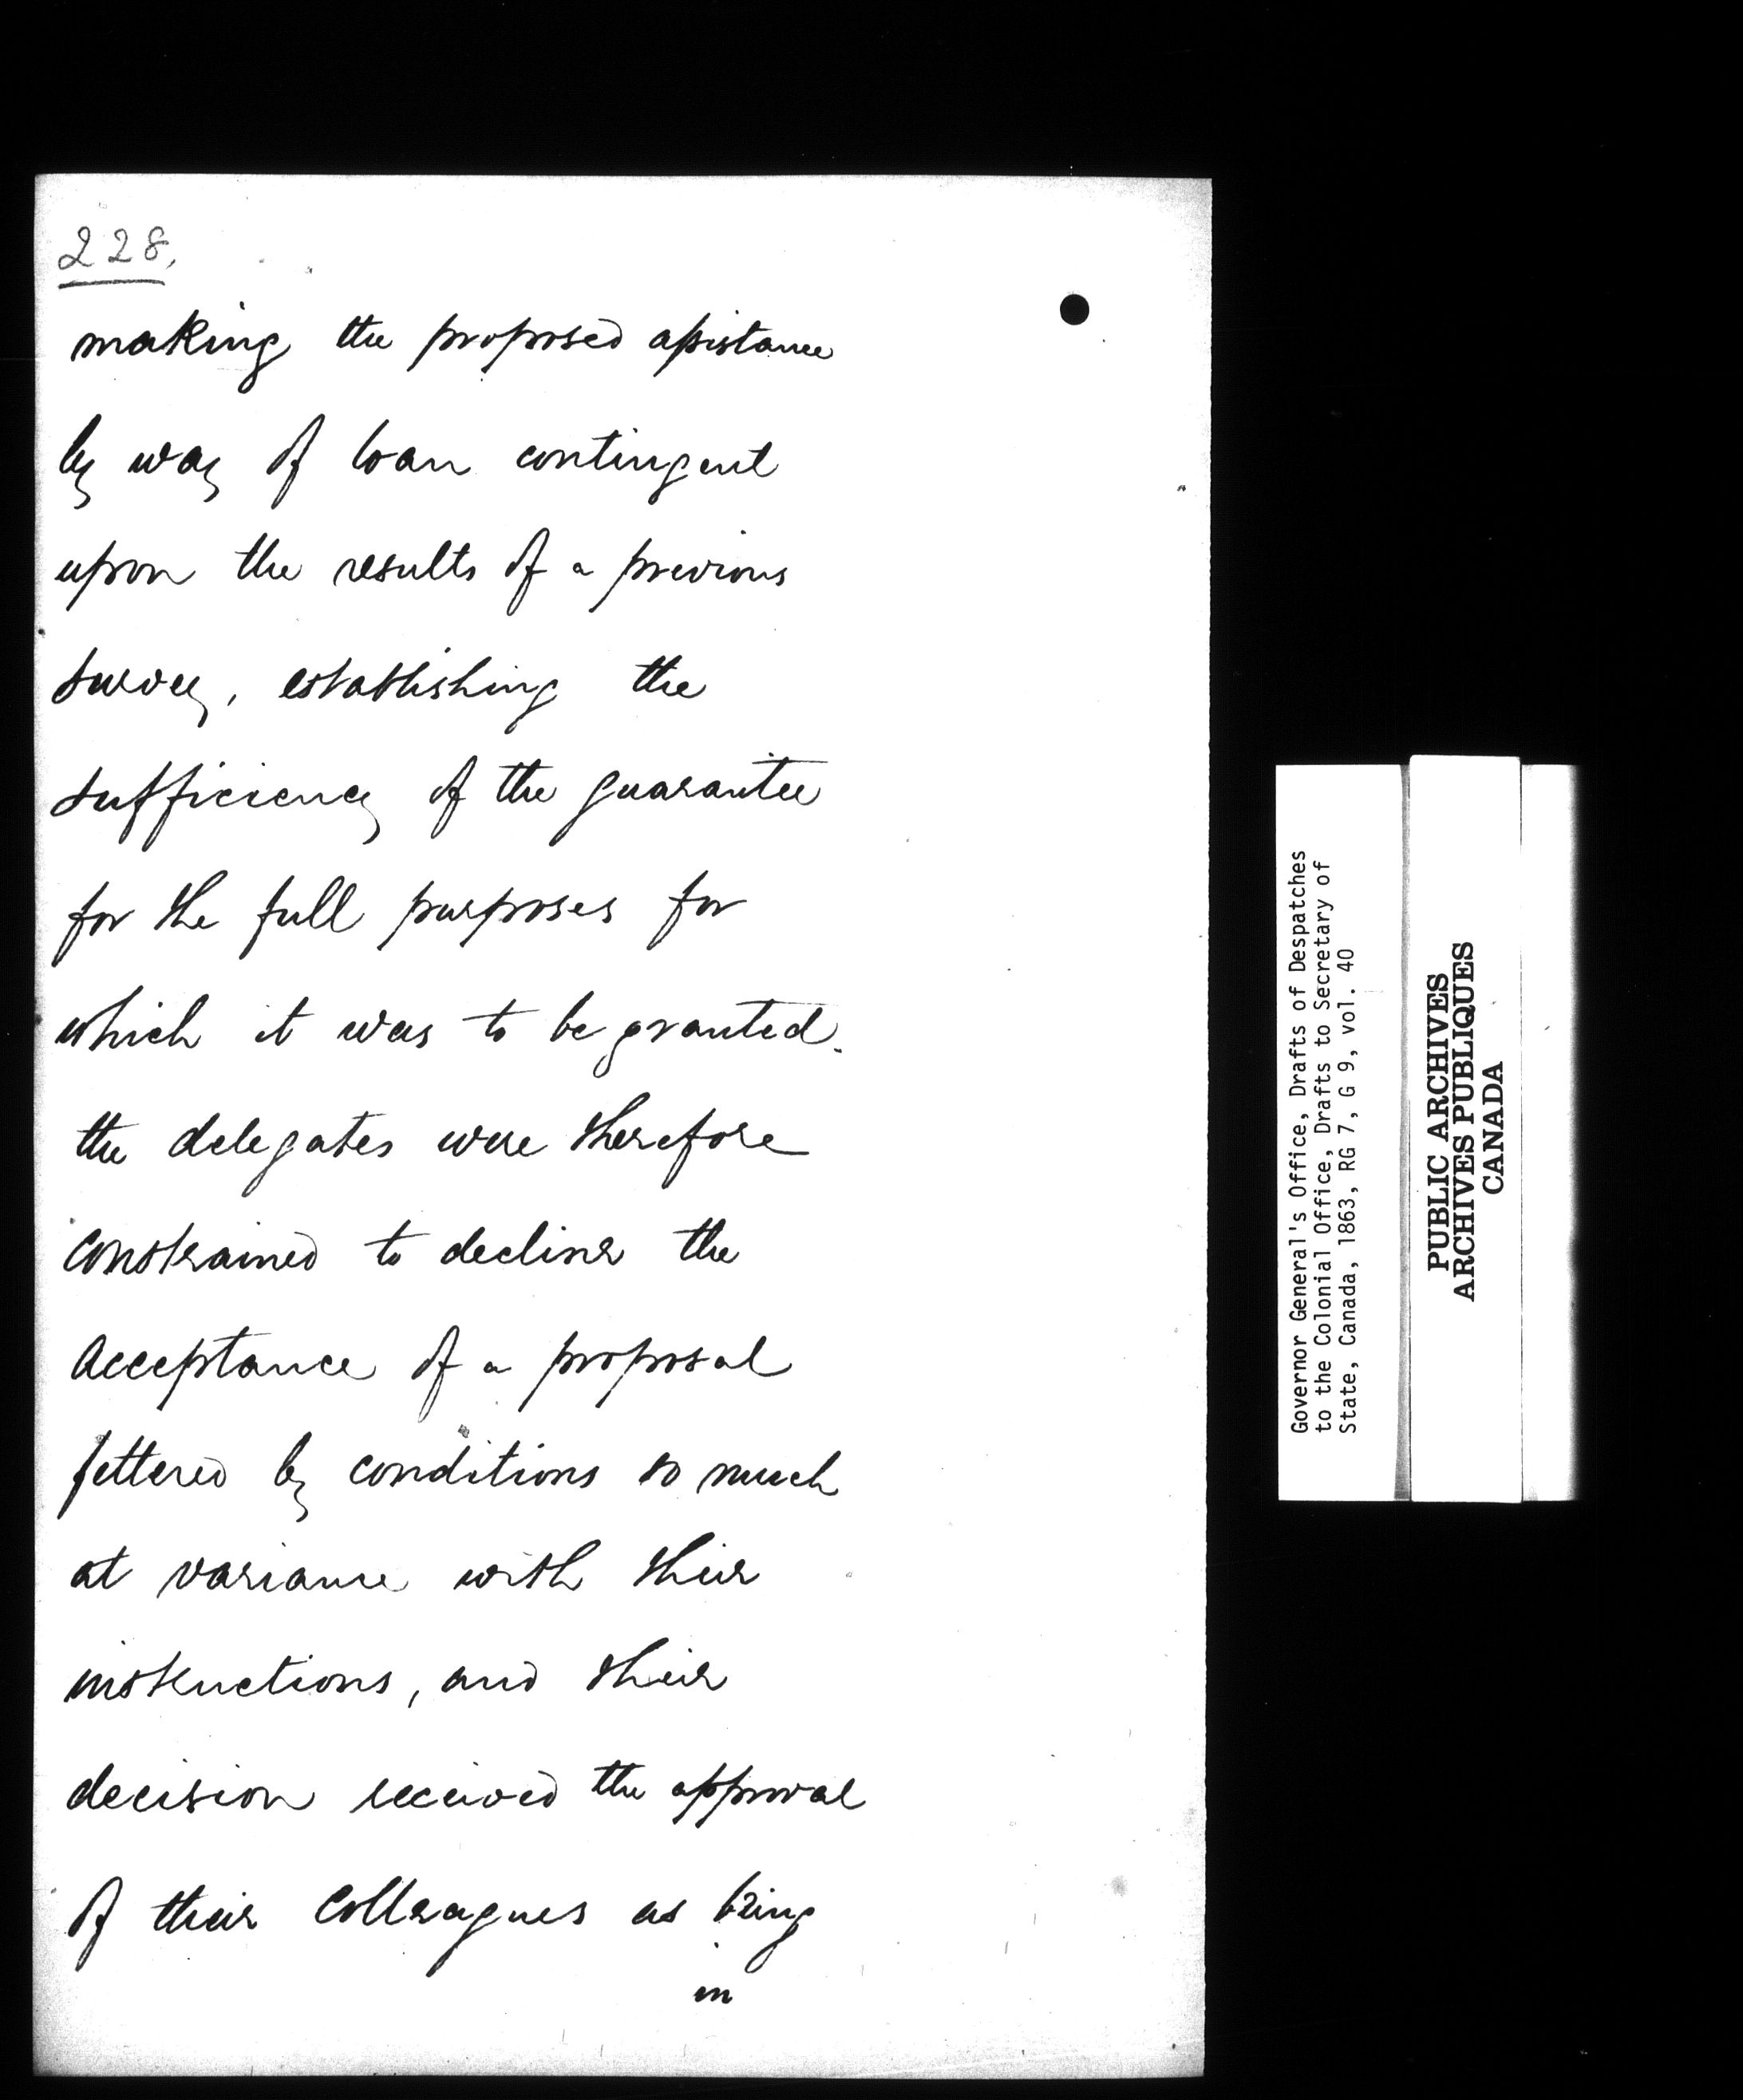 228.
making the proposed assistance
by way of loan contingent
upon the results of a previous
survey, establishing the
sufficiency of the guarantee
for the full purposes for
which it was to be granted.
the delegates were therefore
constrained to decline the
acceptance of a proposal
fettered by conditions so much
at variance with their
instructions, and their
decision received the approval
of their Colleagues as being
in
Governor General's Office, Drafts of Despatches
to the Colonial Office, Drafts to Secretary of
State, Canada, 1863, RG 7, G 9, vol. 40
PUBLIC ARCHIVES
ARCHIVES PUBLIQUES
CANADA